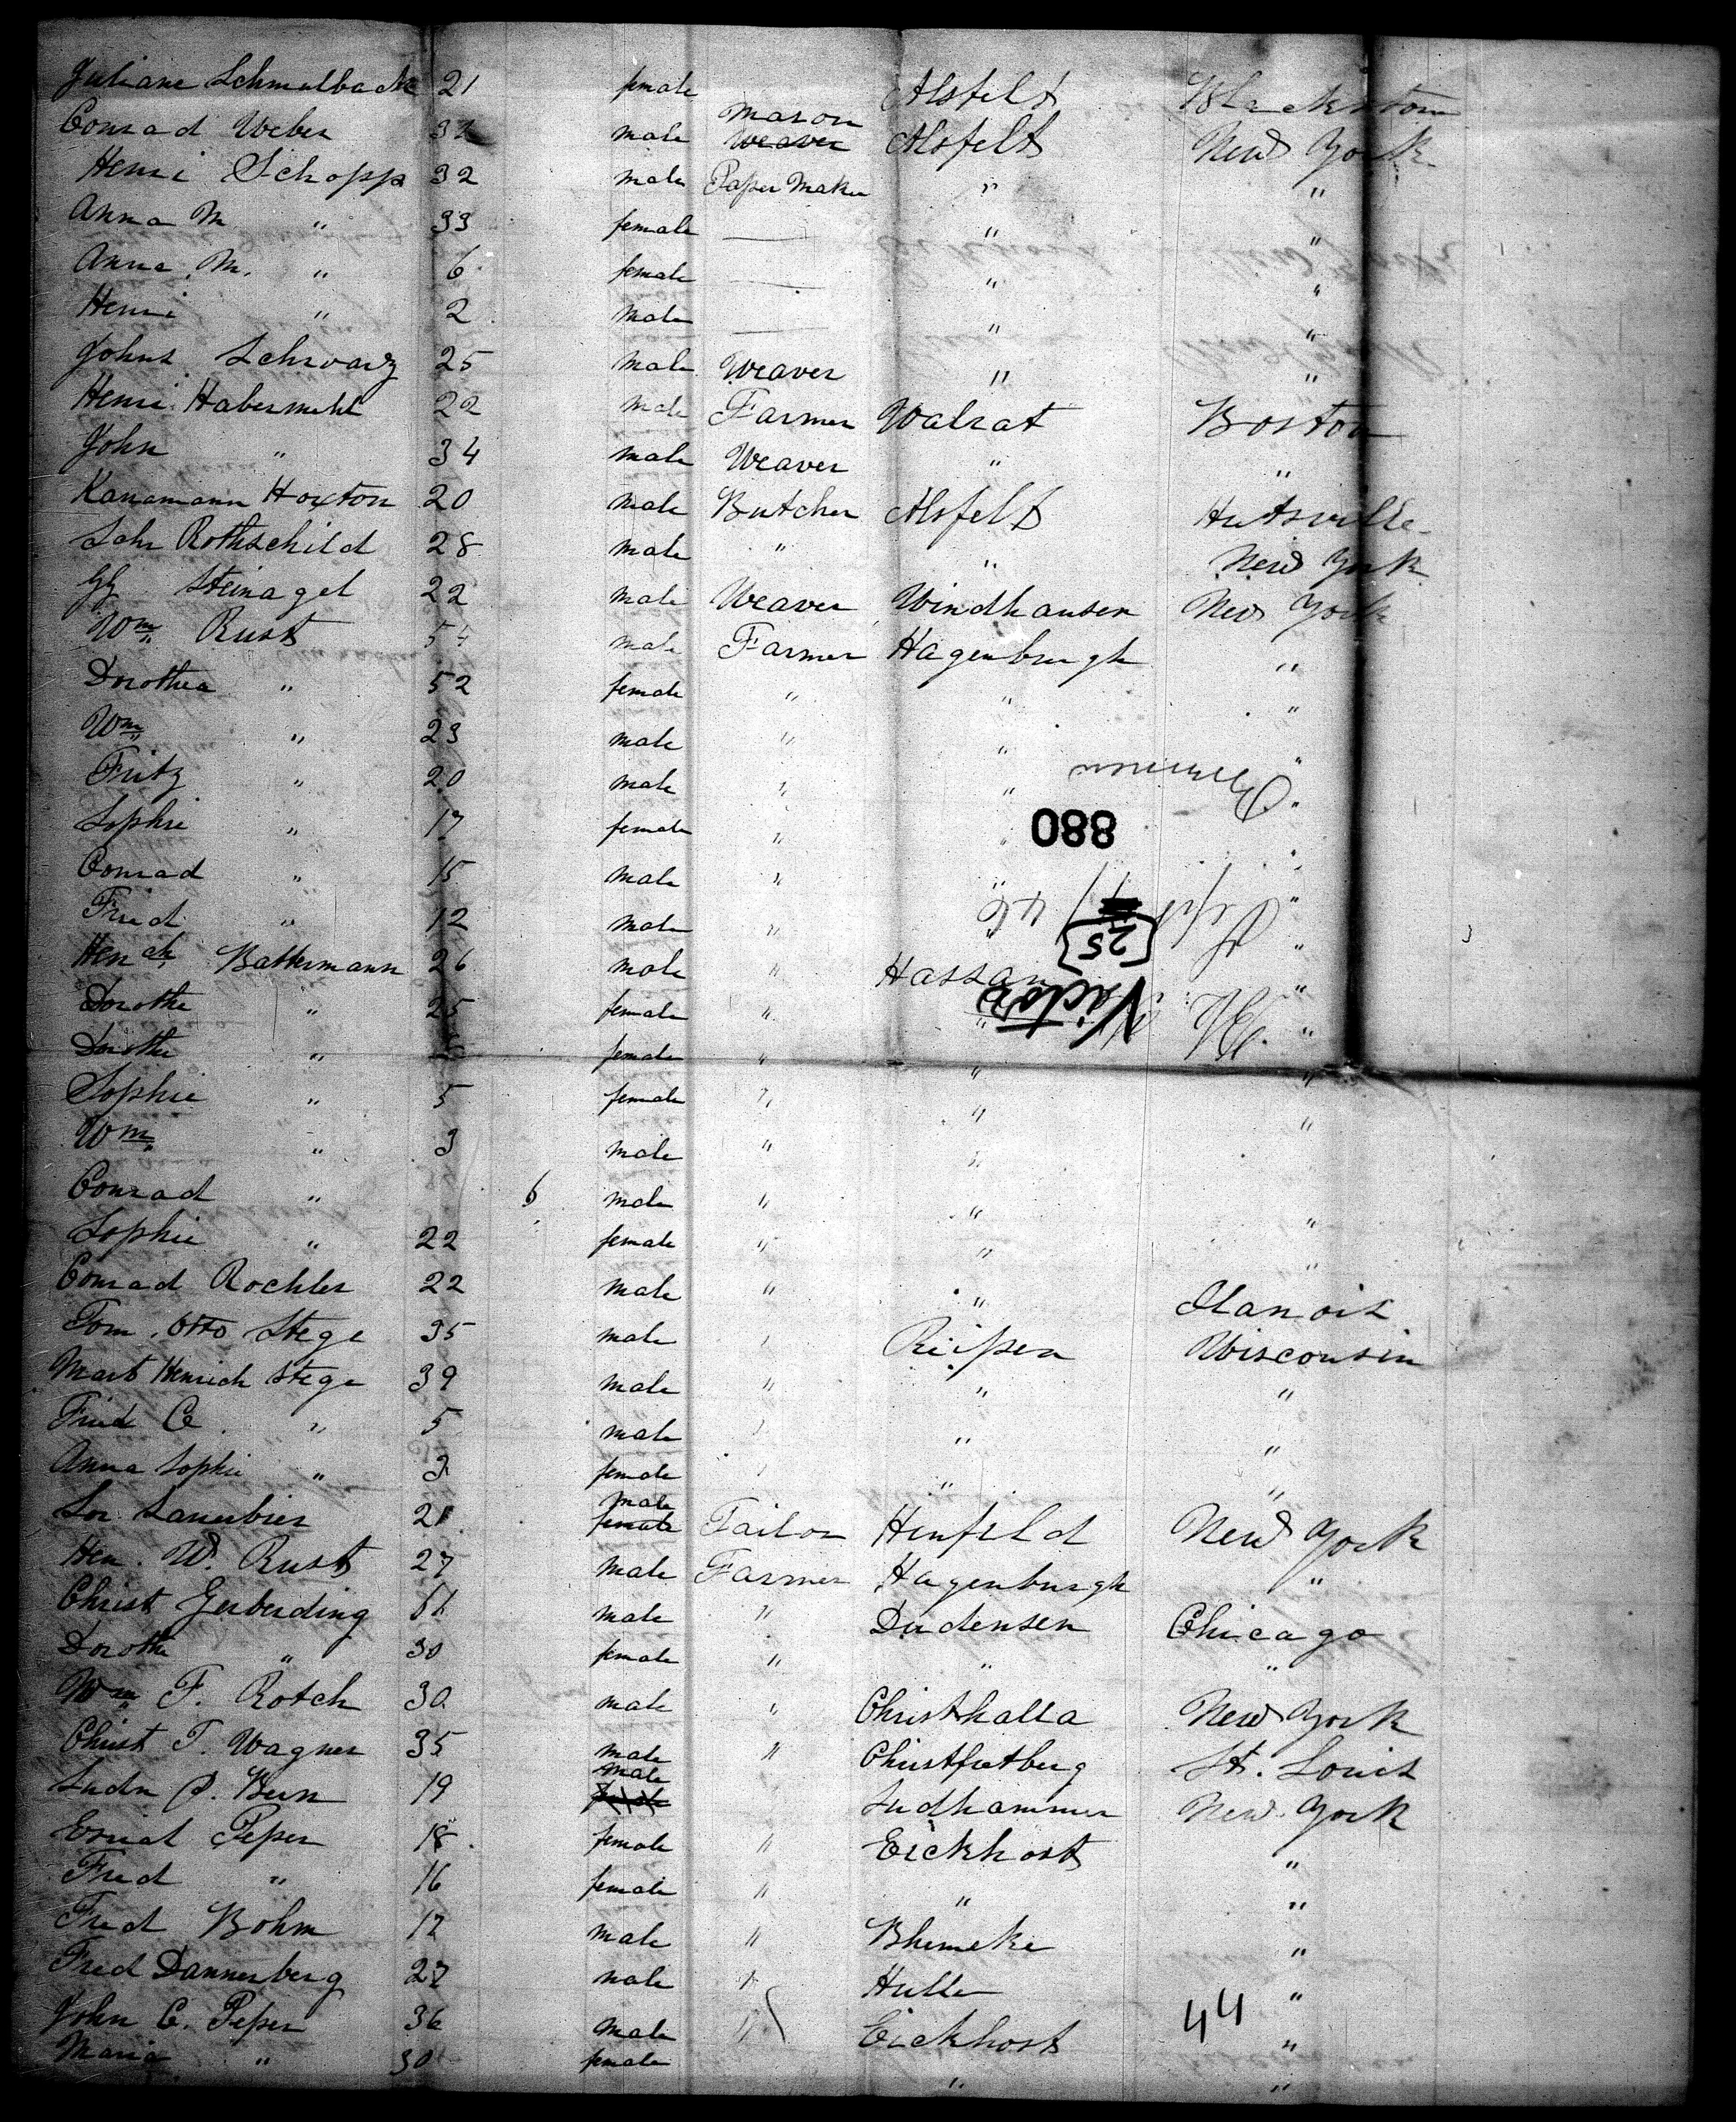 Juliane Schmulbach 21 female Alsfeld
Conrad Weber 32 male Mason Weaver Alsfeld New York
Henri Schopp 32 male Paper Maker " "
Anna M. " 33 female — " "
Anna M. " 6 female — " "
Henri " 2 male — " "
Johns Schwarz 25 male Weaver " "
Henri Habermehl 22 male Farmer Walrat Boston
John " 34 male Weaver " "
Kanamann Horton 20 male Butcher Alsfeld Hutsville
Rothschild 28 male " " New York
Steinagel 22 male Weaver Windhausen New York
Wm Rust 54 male Farmer Hagenburgh "
Dorothea " 52 female " " "
Wm " 23 male " " "
Fritz " 20 male " " "
Sophie " 17 female " " "
088
Conrad " 15 male " " "
Fried " 12 male " " "
Sept / 46
[25]
Hench Battermann 26 male " Hassan "
Victor
Dorothe " 25 female " " "
Dorothe " female " " "
Sophie " 5 female " " "
Wm " 3 male " "
Conrad " 6 male " " "
Sophie " 22 female " " "
Conrad Rochler 22 male " " Ilanois
Tom. Otto Stege 35 male " Riipen Wisconsin
Mart Henrich Stege 39 male " " "
Fried C. " 5 male " " "
Anna Sophie " 3 female " " "
Lanubier 21 male female Tailor Hinfeld New York
Hen. W. Rust 27 male Farmer Hagenburgh "
Christ Gerberding 61 male " Dudensen Chicago
Dorothe " 30 female " " "
Wm F. Rotch 30 male " Christhalla New York
Christ T. Wagner 35 male " St. Louis
19 male " Ludhammer New York
Peper 18 female " Eickhost "
Fried " 16 female " " "
Fred Bohm 17 male " Bhemeke "
Fred Dannenberg 27 male " Hulle "
44
John C. Peper 36 male " Eickhost "
Maria " 30 female " "